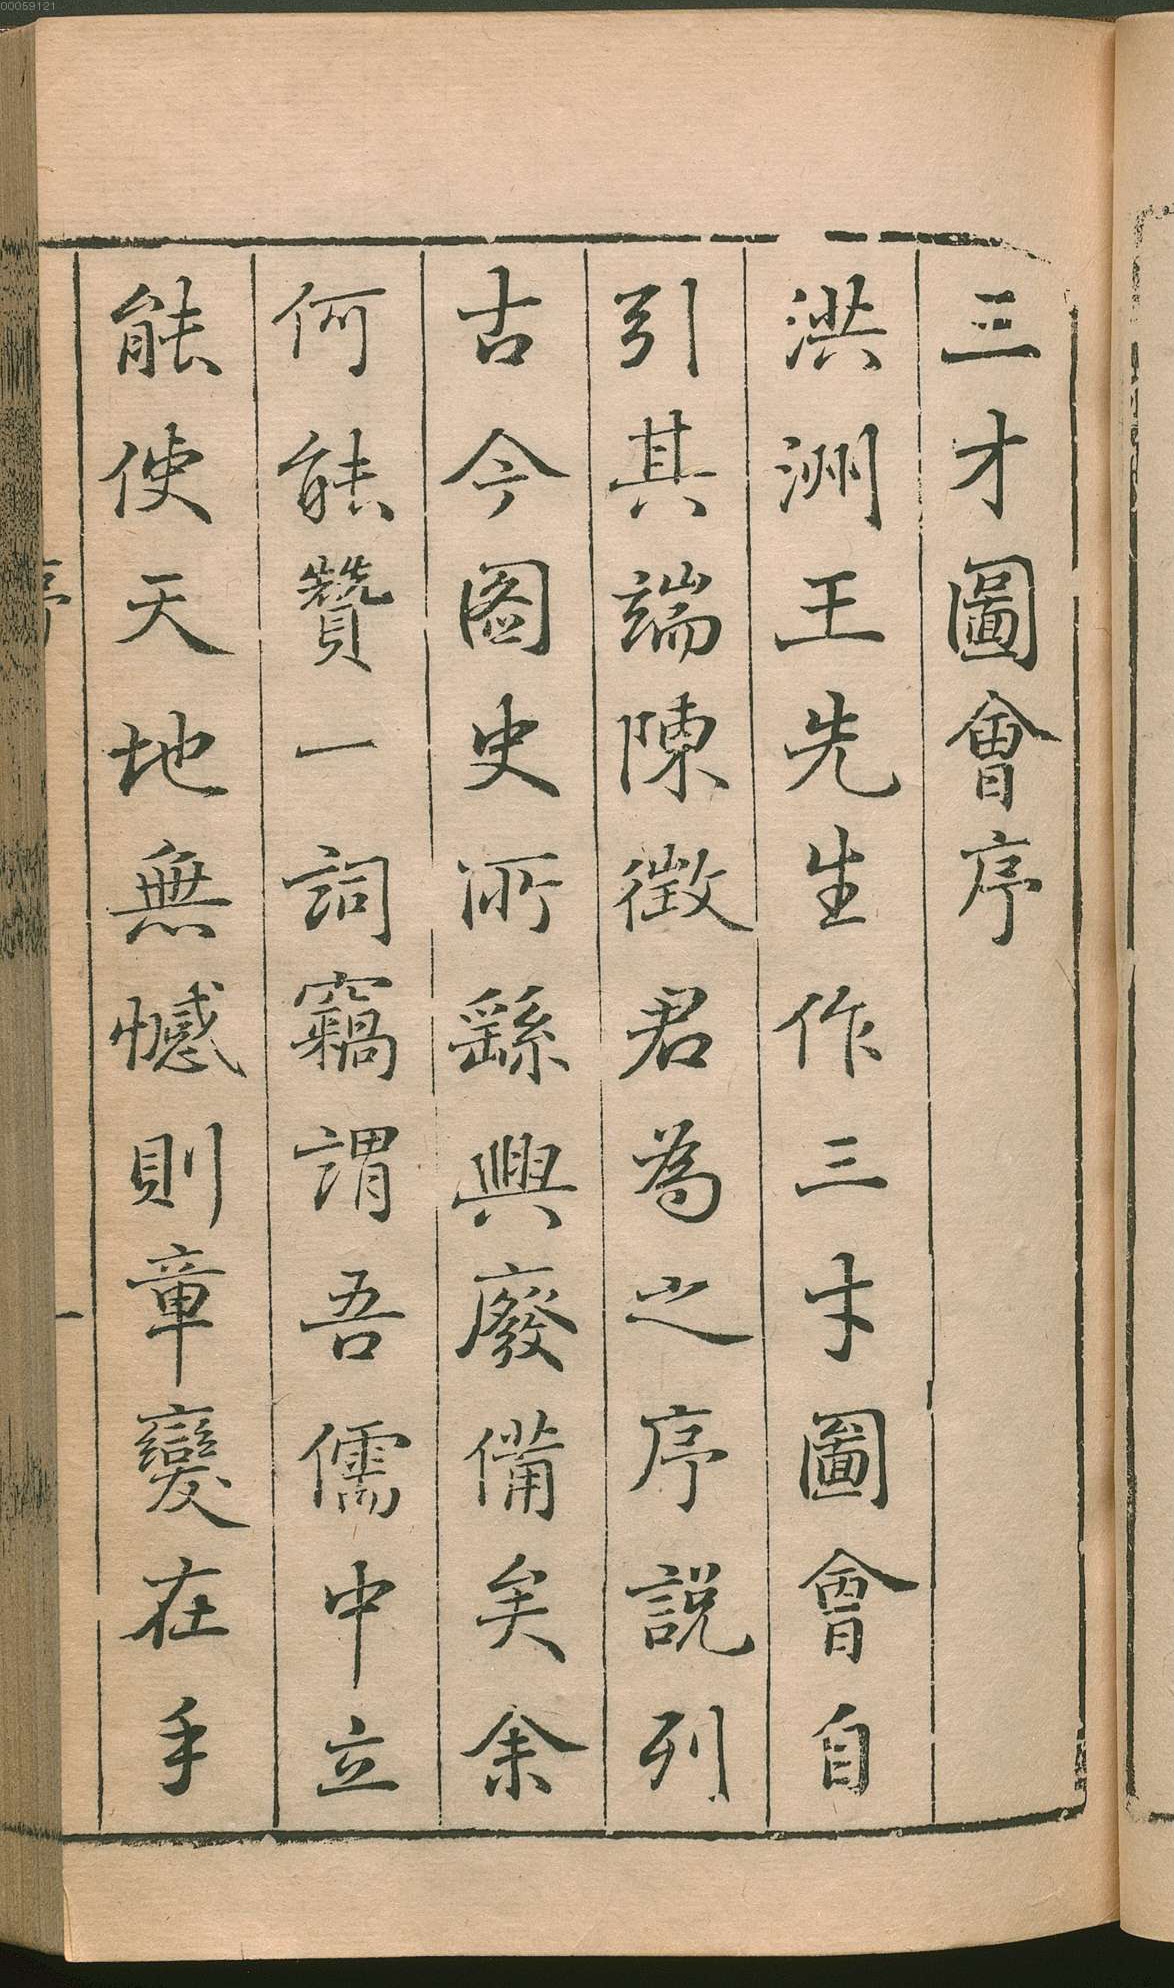 三才圖會序
洪洲王先生作三才圖會自
引其端陳徵君為之序說列
古今圖史所繇興廢備矣余
何能贊一詞竊謂吾儒中立
能使天地無憾則章變在手
序
一
00059121